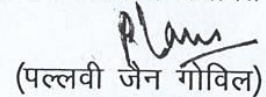 (पल्लवी जैन गोविल)